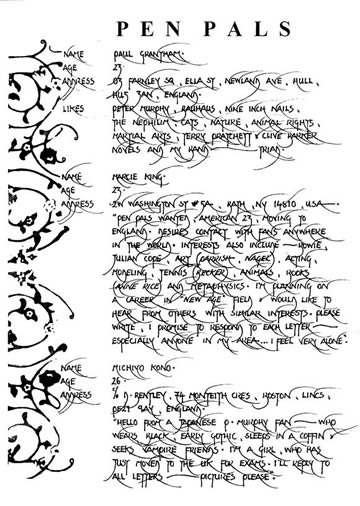 PEN PALS
NAME PAUL GRANTHAM.
AGE 23
ADDRESS 83 FARNLEY SQ, ELLA ST, NEWLAND AVE, HULL,
HU5 3AN, ENGLAND.
LIKES PETER MURPHY, BAUHAUS, NINE INCH NAILS,
THE NEPHILIM, CATS, NATURE, ANIMAL RIGHTS,
MARTIAL ARTS, TERRY PRATCHETT & CLIVE BARKER
NOVELS AND MY BAND — TRIAD.
NAME MARCIE KING.
AGE 23.
ADDRESS WASHINGTON ST # 5A, BATH, NY 14810, USA —.
"PEN PALS WANTED, AMERICAN 23, MOVING TO
ENGLAND. DESIRES CONTACT WITH FANS ANYWHERE
IN THE WORLD. INTERESTS ALSO INCLUDE — BOWIE,
JULIAN COPE, ART (PARRISH, NAGEL), ACTING,
MODELING, TENNIS (BECKER), ANIMALS, BOOKS
(ANNE RICE) AND METAPHYSICS. I'M PLANNING ON
A CAREER IN "NEW AGE" FIELD & WOULD LIKE TO
HEAR FROM OTHERS WITH SIMILAR INTERESTS. PLEASE
WRITE, I PROMISE TO RESPOND TO EACH LETTER —
ESPECIALLY ANYONE IN MY AREA... I FEEL VERY ALONE."
NAME MICHIYO KONO.
AGE 26
ADDRESS % D. BENTLEY, 74 MONTEITH CRES, BOSTON, LINCS,
PE21 9AY, ENGLAND.
"HELLO FROM A JAPANESE P. MURPHY FAN — WHO
WEARS BLACK, EARLY GOTHIC, SLEEPS IN A COFFIN &
SEEKS VAMPIRE FRIENDS. I'M A GIRL, WHO HAS
JUST MOVED TO THE UK FOR EXAMS. I'LL REPLY TO
ALL LETTERS — PICTURES PLEASE."